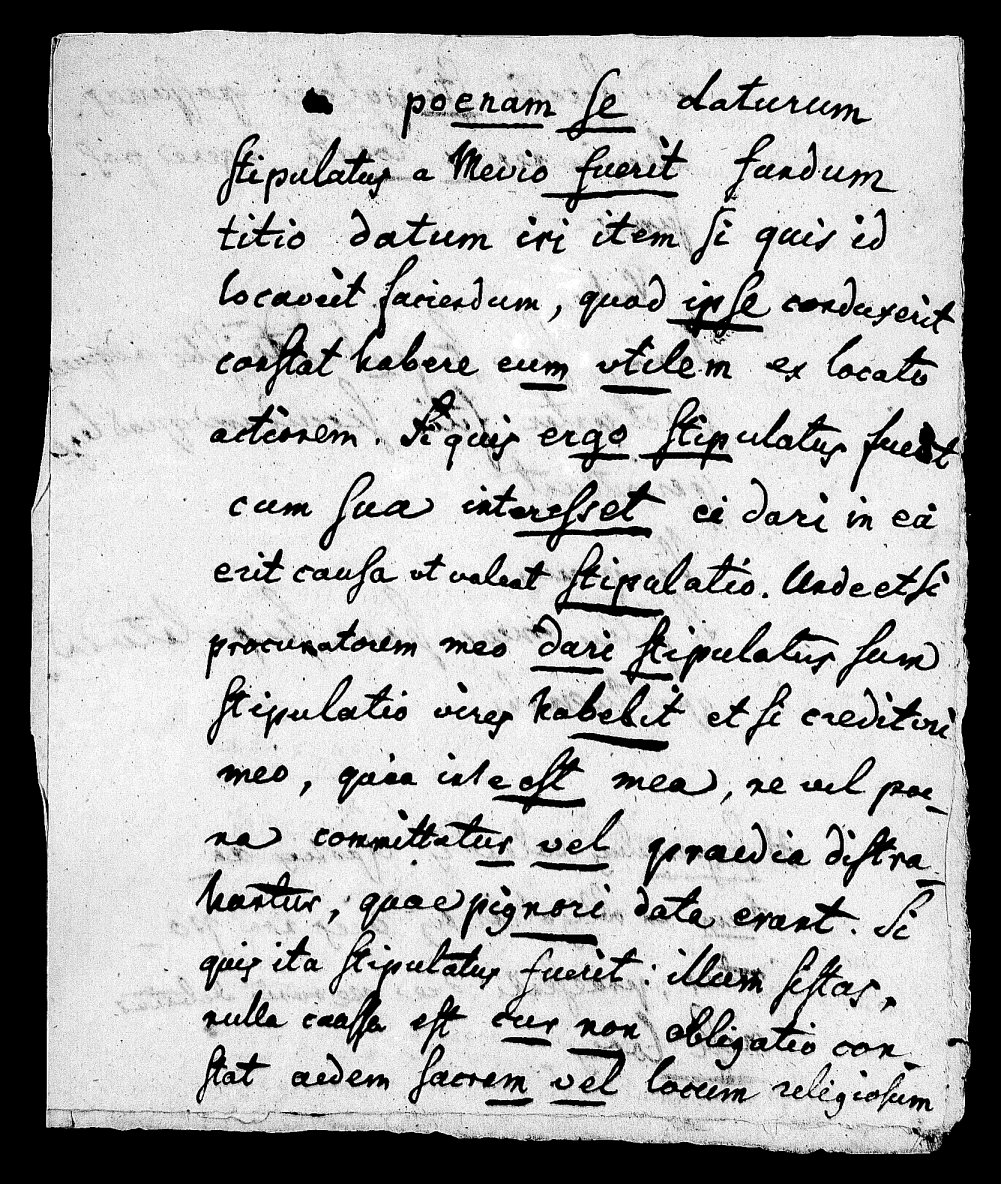 poenam se daturum
stipulatus a Mevio fuerit fundum
titio datum iri item si quis id
locaverit faciendum, quod ipse conduxerit
constat habere eum utilem ex locato
actionem. Si quis ergo stipulatus fuerit
cum sua interesset ei dari in eá
erit causa ut valeat stipulatio. Unde et si
procuratorem meo dari stipulatus sum
stipulatio vires habebit et si creditori
meo, quia interest mea, ne vel poe-
na committatur vel praedia distra-
hantur, quae pignori data erant. Si
quis ita stipulatus fuerit: illum sistas,
nulla caussa est cur non obligatio con
stat aedem sacram vel locum religiosum